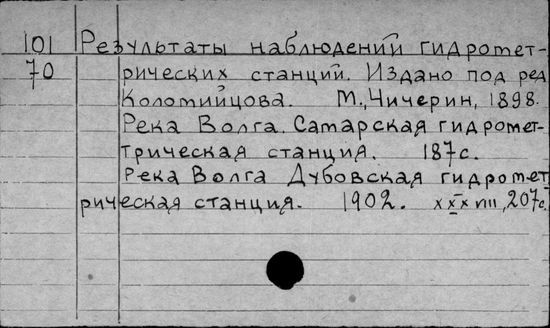 101 Результаты наблюдений гидромет-
70 рических станций. Издано под ред
Коломийцова. М., Чичерин, 1898.
Река Волга. Самарская гидромет-
трическая станция. 187с.
Река Волга Дубовская гидромет
рическая станция. 1902. XXXVIII, 207с.